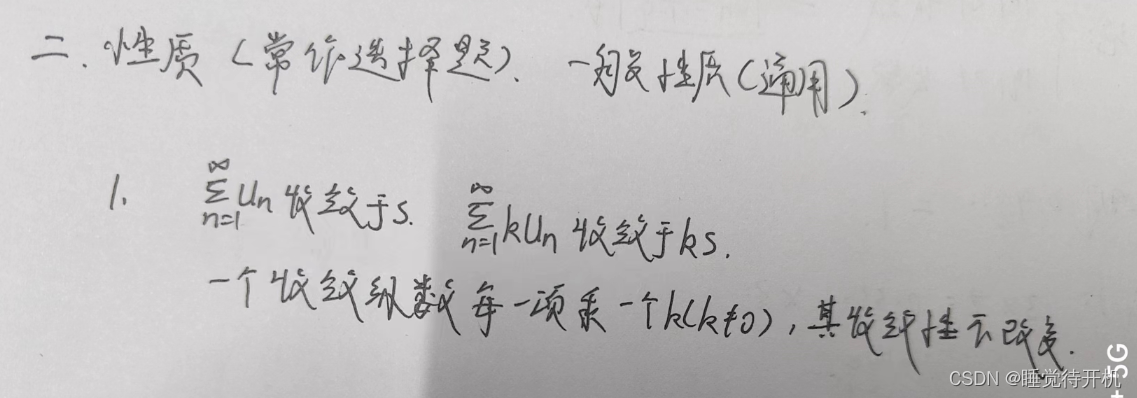 二、性质(常作选择题). 一般性质(通用).
1. ∞∑n=1 Un 收敛于s. ∞∑n=1 kUn 收敛于ks.
一个收敛级数每一项乘一个k(k≠0),其收敛性不改变.
+ 5G
CSDN @睡觉待开机